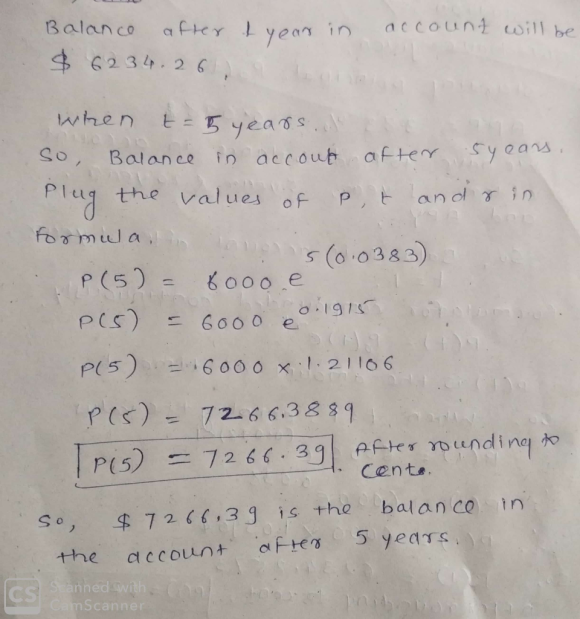 Balance after 1 year in account will be
$ 6234.26,
when t = 5 years.
So, Balance in accout after 5years.
Plug the values of P, t and r in
formula.
P(5) = 6000 e^5(0.0383)
P(5) = 6000 e^0.1915
P(5) = 6000 x 1.21106
P(5) = 7266.3889
P(5) = 7266.39. After rounding to
cents.
So, $7266.39 is the balance in
the account after 5 years.
CS Scanned with
CamScanner